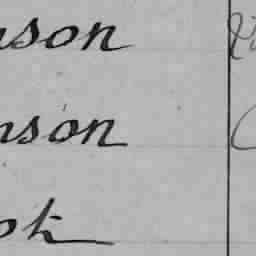 nson
nson
ok